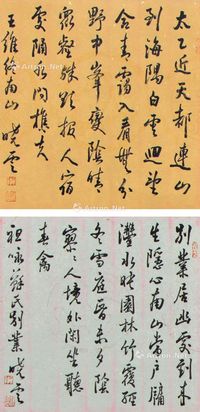 太近天都連山
到海隅白雲迴望
合青靄入看無分
野中峯變陰晴
眾壑殊欲投人宿
處隔水问樵夫
王維終南山 曉雲
別業居幽處到來
生隱心南山當戶牖
灃水映園林竹覆經
冬雪庭昏未夕陰
寥〻人境外閑坐聽
春禽
祖咏蘇氏別業 曉雲